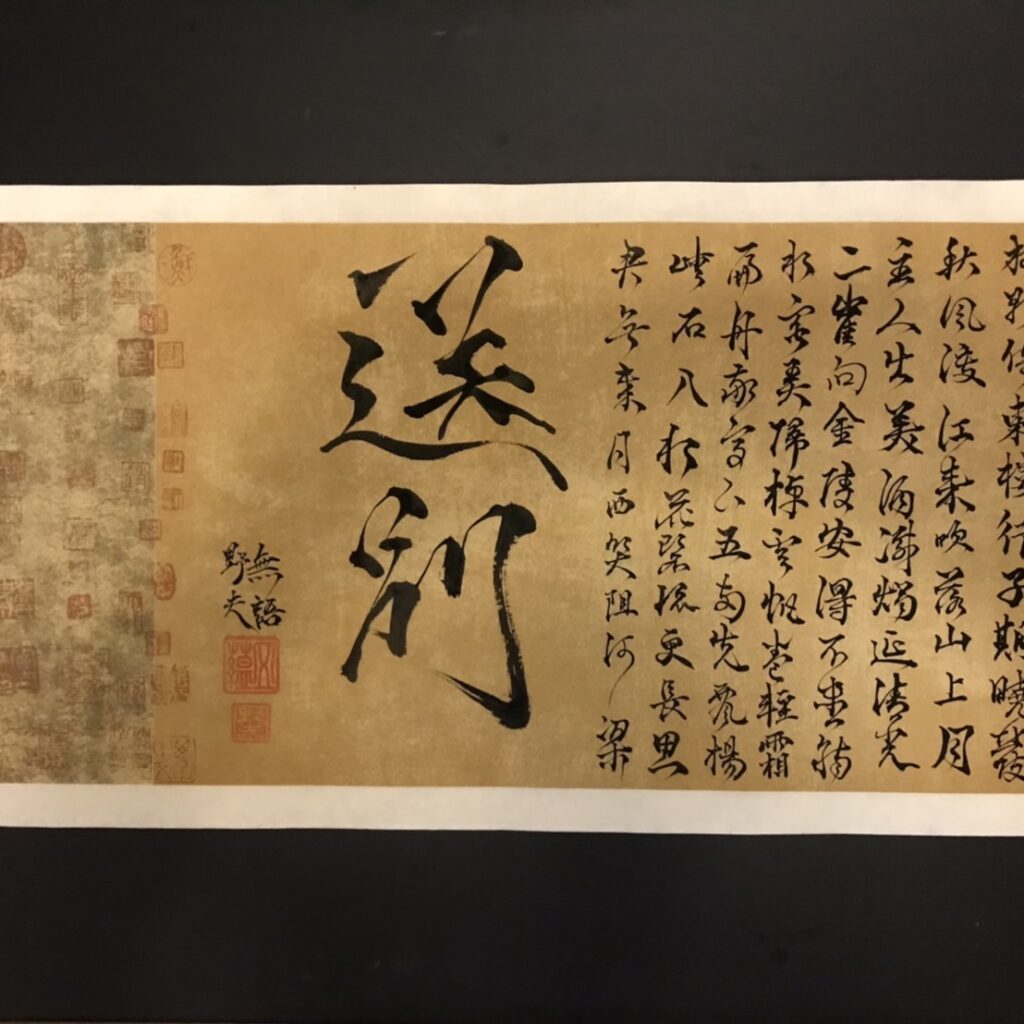 放歌倚東樓行子期曉發
秋風渡江來吹落山上月
主人出美酒滅燭延清光
二崔向金陵安得不盡觴
水客弄歸棹雲帆卷輕霜
扁舟敬亭下五兩先飄揚
峽石入水花碧流更長思
君無歲月西笑阻河梁
送別
無語
野夫